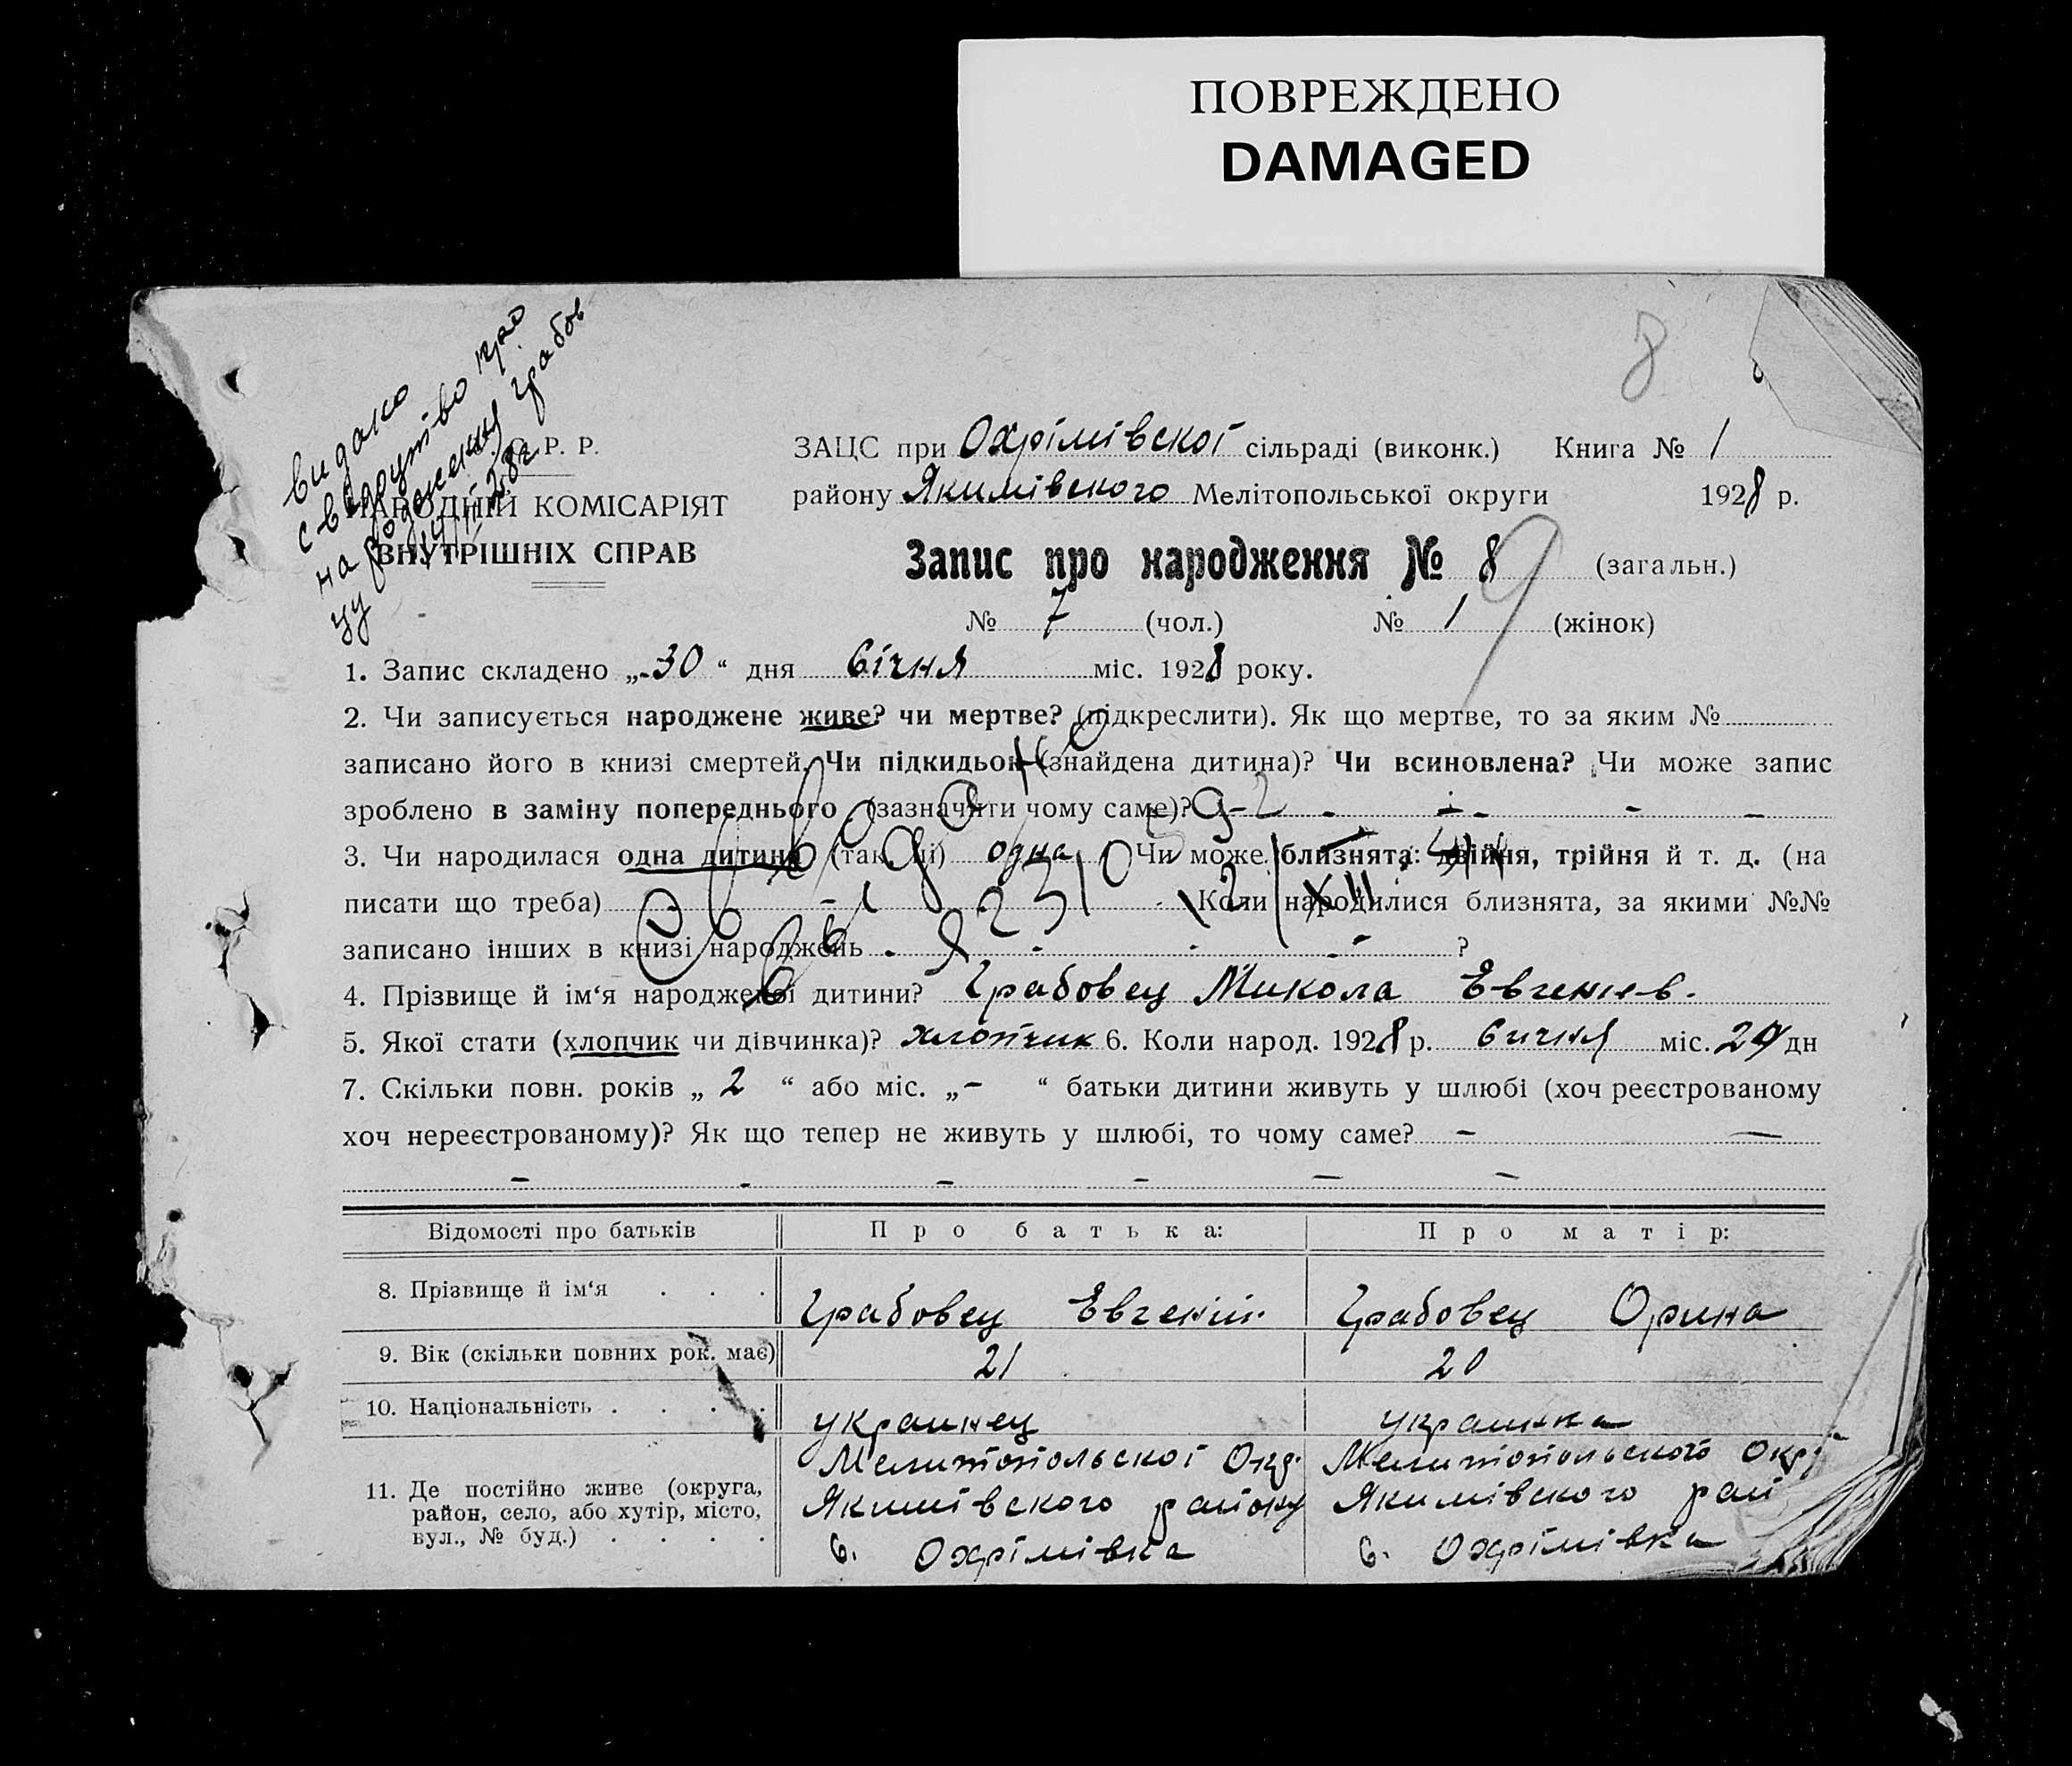 ПОВРЕЖДЕНО
DAMAGED
8
видано
свідоцтво про
народження Грабов
цу
ЗАЦС при Охрімівскої сільраді (виконк.) Книга № 1
Р. Р.
району Якимівского Мелітопольської округи 1928 р.
НАРОДНІЙ КОМІСАРІЯТ
ВНУТРІШНІХ СПРАВ
Запис про народження № 8 (загальн.)
№ 7 (чол.) № 1 (жінок)
1. Запис складено „30“ дня Січня міс. 1928 року.
2. Чи записується народжене живе? чи мертве? (підкреслити). Як що мертве, то за яким №
записано його в книзі смертей. Чи підкидьок (знайдена дитина)? Чи всиновлена? Чи може запис
зроблено в заміну попереднього (зазначити чому саме)? - - - -
3. Чи народилася одна дитина (так, ні) одна Чи може близнята: двійня, трійня й т. д. (на
писати що треба) - Коли народилися близнята, за якими №№
записано інших в книзі народжень - - - - ?
4. Прізвище й ім'я народженої дитини? Грабовец Микола Евгенієв.
5. Якої стати (хлопчик чи дівчинка)? хлопчик 6. Коли народ. 1928 р. Сичня міс. 29 дн
7. Скільки повн. років „ 2 “ або міс. „ - “ батьки дитини живуть у шлюбі (хоч реєстрованому
хоч нереєстрованому)? Як що тепер не живуть у шлюбі, то чому саме? - —
- - - - - -
Відомості про батьків Про батька: Про матір:
8. Прізвище й ім'я . . . Грабовец Евгеній Грабовец Орина
9. Вік (скільки повних рок. має) 21 20
10. Національність . . . . украинец украинка
11. Де постійно живе (округа, Мелитопольскої Окр. Мелитопольского Окр
район, село, або хутір, місто, Якимівского району Якимівского рай
вул., № буд.) . . . . С. Охрімівка С. Охрімівка